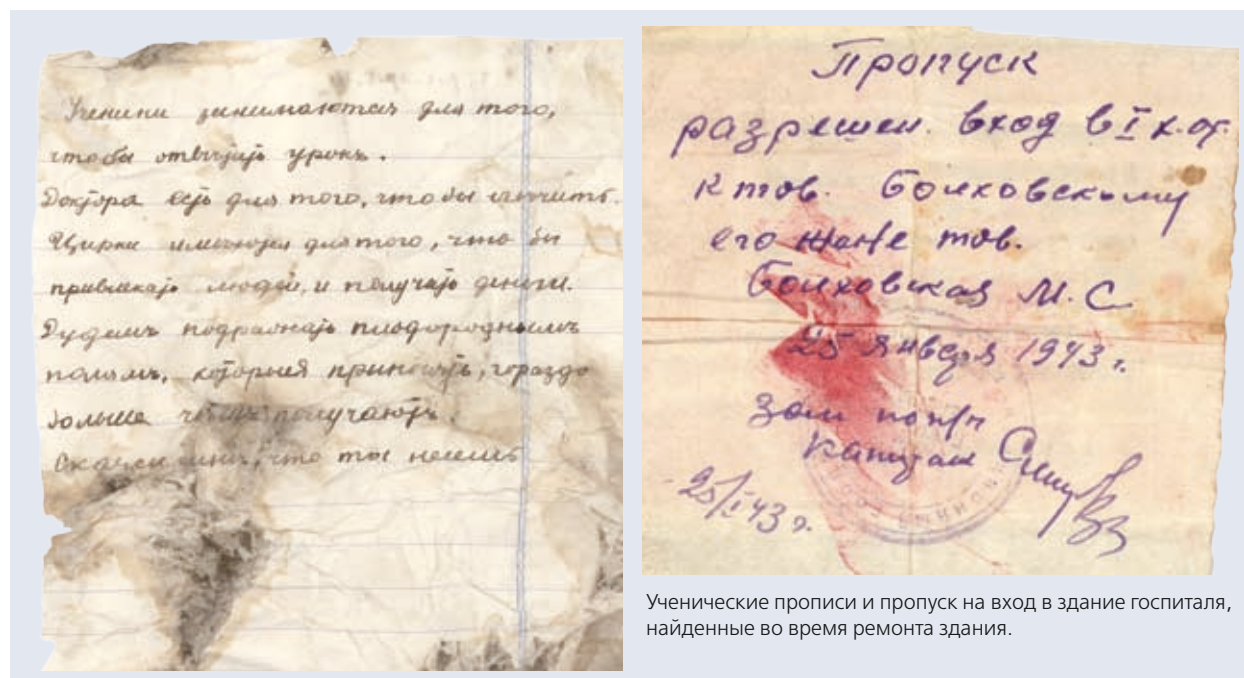 Ученики занимаются для того,
чтобы отвѣчать урокъ.
Доктора есть для того, что бы лечить.
Цирки имѣются для того, что бы
привлекать людей, и получать деньги.
Будемъ подражать плодороднымъ
полямъ, которыя приносятъ, гораздо
больше чѣмъ получаютъ.
Скажи мнѣ, что ты
Пропуск
разрешен. вход в I х. от.
к тов. Болховскому
его жене тов.
Болховская М. С
25 января 1943 г.
Зам
капитан
25/I 43 г.
Ученические прописи и пропуск на вход в здание госпиталя,
найденные во время ремонта здания.